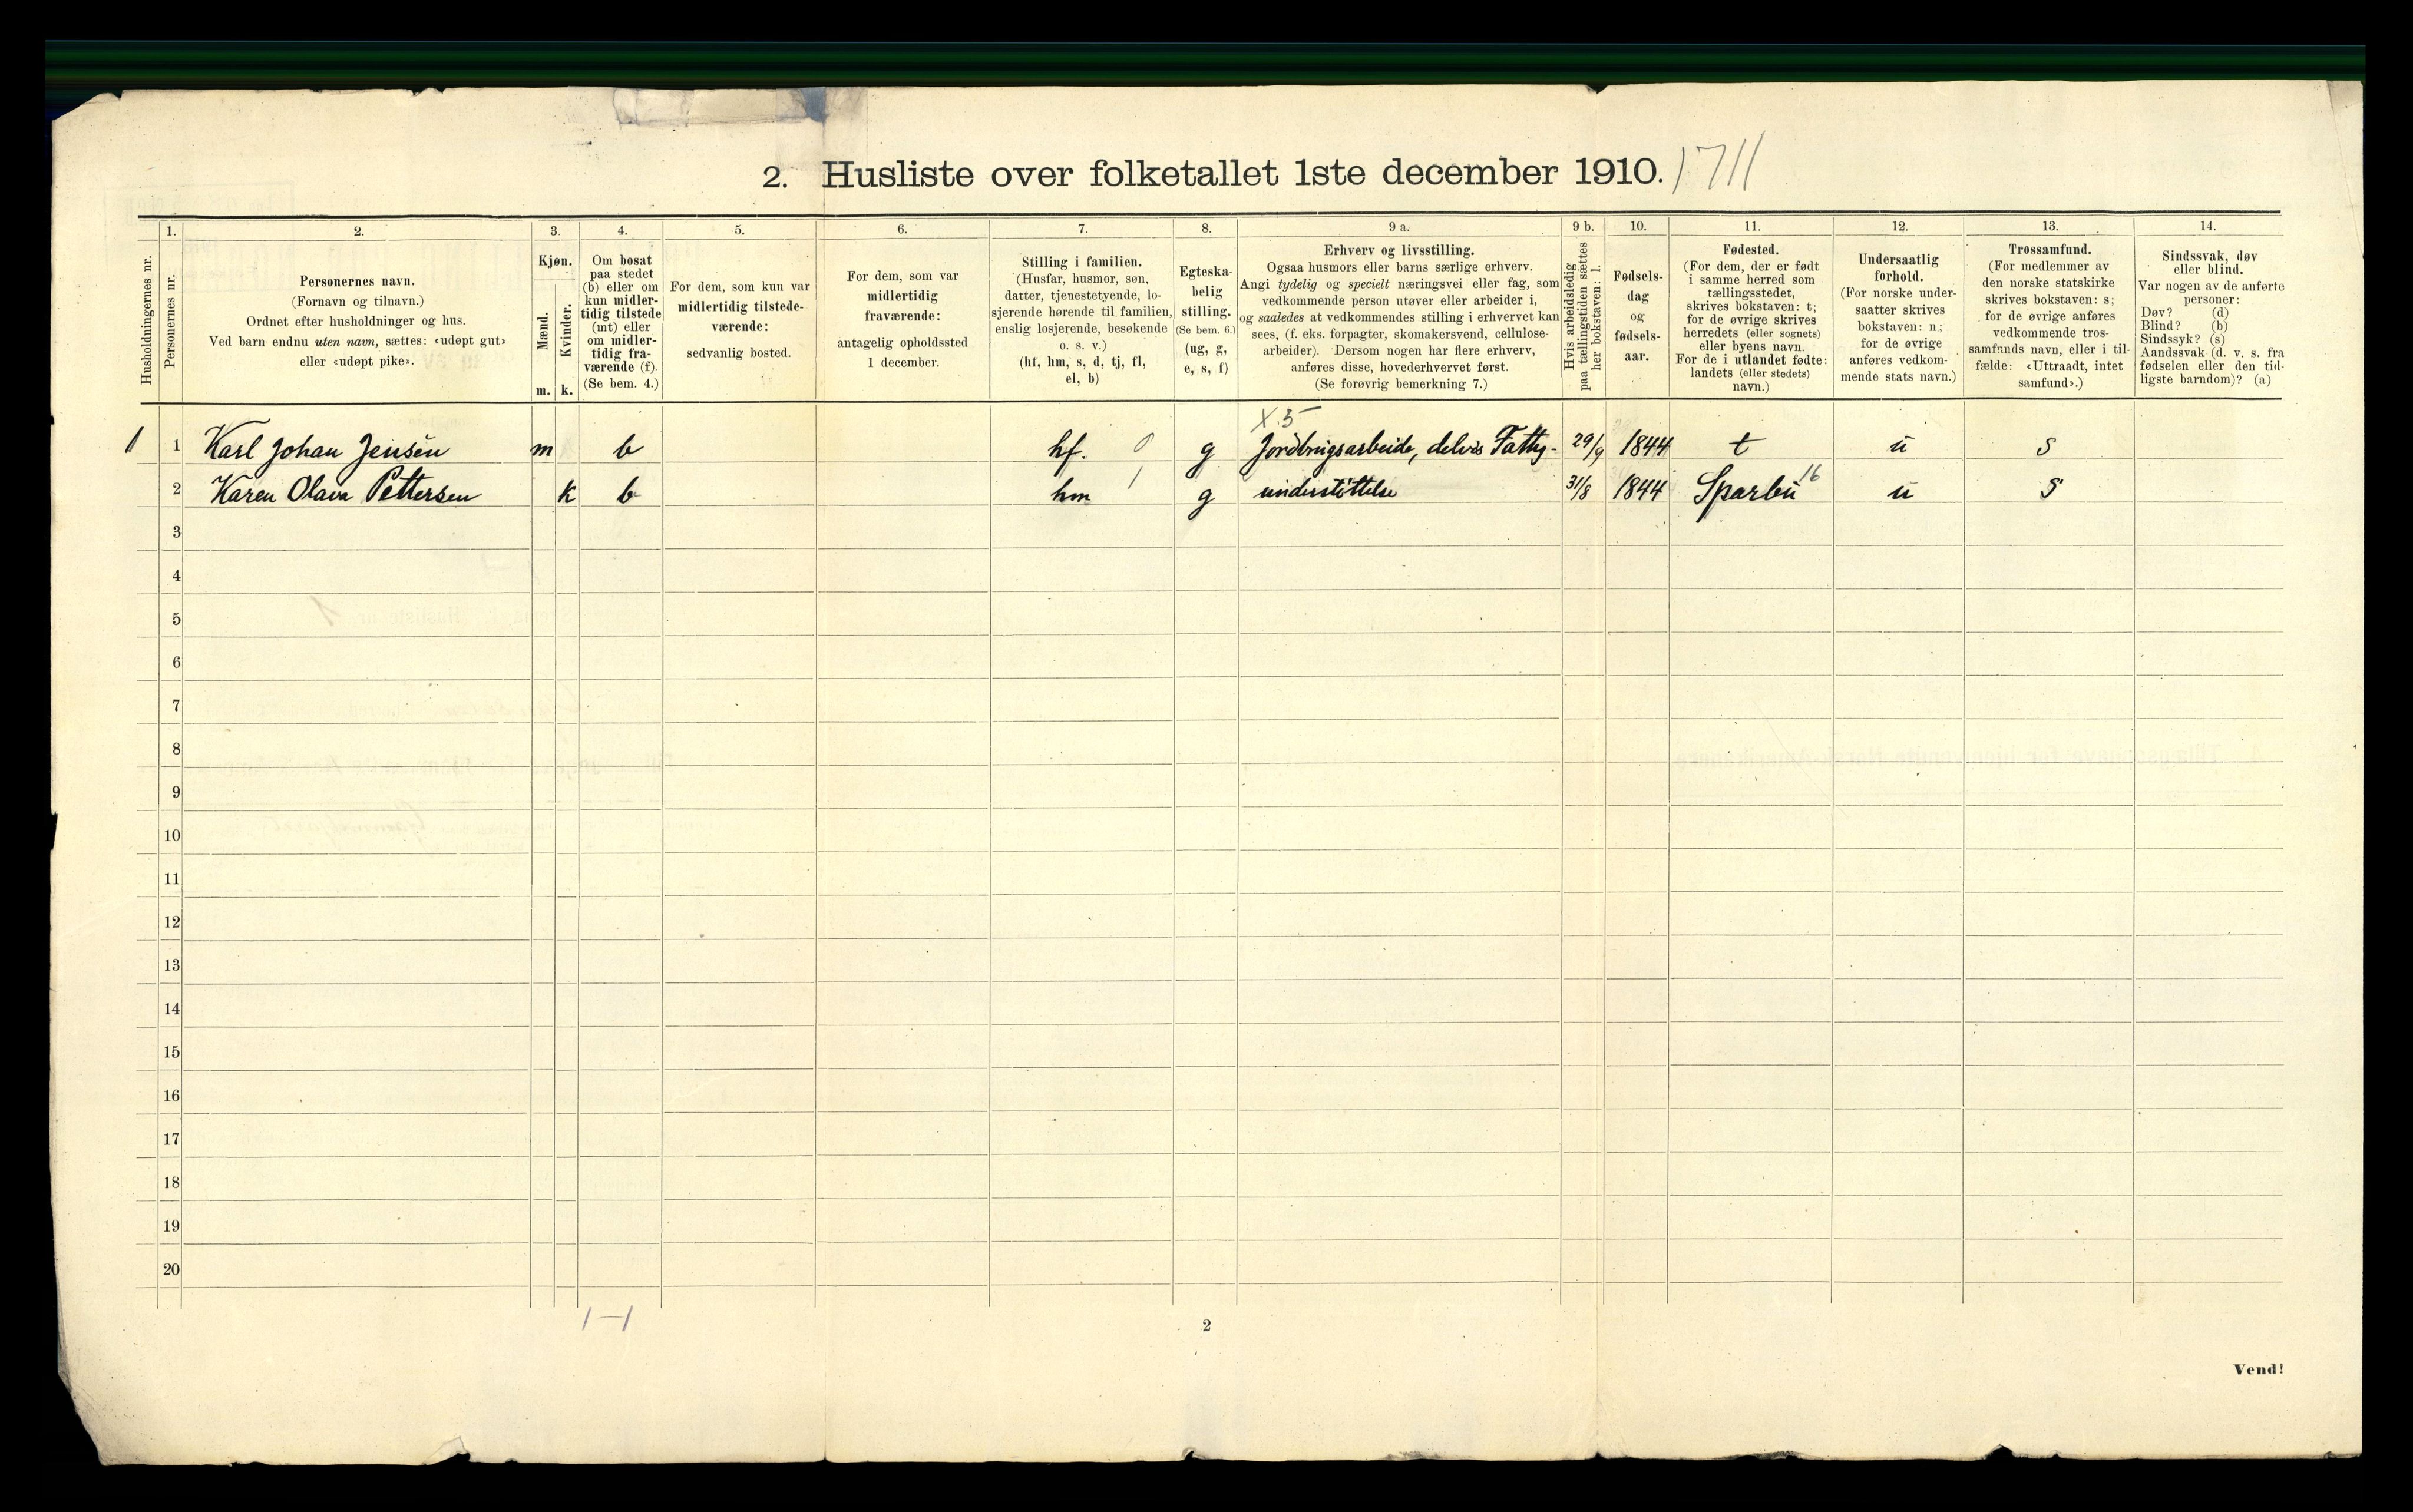 2. Husliste over folketallet 1ste december 1910. 1711
Husholdningernes nr.
1.
Personernes nr.
2.
Personernes navn.
(Fornavn og tilnavn.)
Ordnet efter husholdninger og hus.
Ved barn endnu uten navn, sættes: «udøpt gut»
eller «udøpt pike».
3.
Kjøn.
Mænd.
m.
Kvinder.
k.
4.
Om bosat
paa stedet
(b) eller om
kun midler-
tidig tilstede
(mt) eller
om midler-
tidig fra-
værende (f).
(Se bem. 4.)
5.
For dem, som kun var
midlertidig tilstede-
værende:
sedvanlig bosted.
6.
For dem, som var
midlertidig
fraværende:
antagelig opholdssted
1 december.
7.
Stilling i familien.
(Husfar, husmor, søn,
datter, tjenestetyende, lo-
sjerende hørende til familien,
enslig losjerende, besøkende
o. s. v.)
(hf, hm, s, d, tj, fl,
el, b)
8.
Egteska-
belig
stilling.
(Se bem. 6.)
(ug, g,
e, s, f)
9 a.
Erhverv og livsstilling.
Ogsaa husmors eller barns særlige erhverv.
Angi tydelig og specielt næringsvei eller fag, som
vedkommende person utøver eller arbeider i,
og saaledes at vedkommendes stilling i erhvervet kan
sees, (f. eks. forpagter, skomakersvend, cellulose-
arbeider). Dersom nogen har flere erhverv,
anføres disse, hovederhvervet først.
(Se forøvrig bemerkning 7.)
9 b.
Hvis arbeidsledig
paa tællingstiden sættes
her bokstaven: l.
10.
Fødsels-
dag
og
fødsels-
aar.
11.
Fødested.
(For dem, der er født
i samme herred som
tællingsstedet,
skrives bokstaven: t;
for de øvrige skrives
herredets (eller sognets)
eller byens navn.
For de i utlandet fødte:
landets (eller stedets)
navn.)
12.
Undersaatlig
forhold.
(For norske under-
saatter skrives
bokstaven: n;
for de øvrige
anføres vedkom-
mende stats navn.)
13.
Trossamfund.
(For medlemmer av
den norske statskirke
skrives bokstaven: s;
for de øvrige anføres
vedkommende tros-
samfunds navn, eller i til-
fælde: «Uttraadt, intet
samfund».)
14.
Sindssvak, døv
eller blind.
Var nogen av de anførte
personer:
Døv? (d)
Blind? (b)
Sindssyk? (s)
Aandssvak (d. v. s. fra
fødselen eller den tid-
ligste barndom)? (a)
X.5
1 1 Karl Johan Jensen m b hf. 0 g Jordbrugsarbeide, delvis Fattig- 29/9 1844 t n s
2 Karen Olava Pettersen k b hm 1 g understøttelse 31/8 1844 Sparbu 16 n s
3
4
5
6
7
8
9
10
11
12
13
14
15
16
17
18
19
20
1-1
2
Vend!